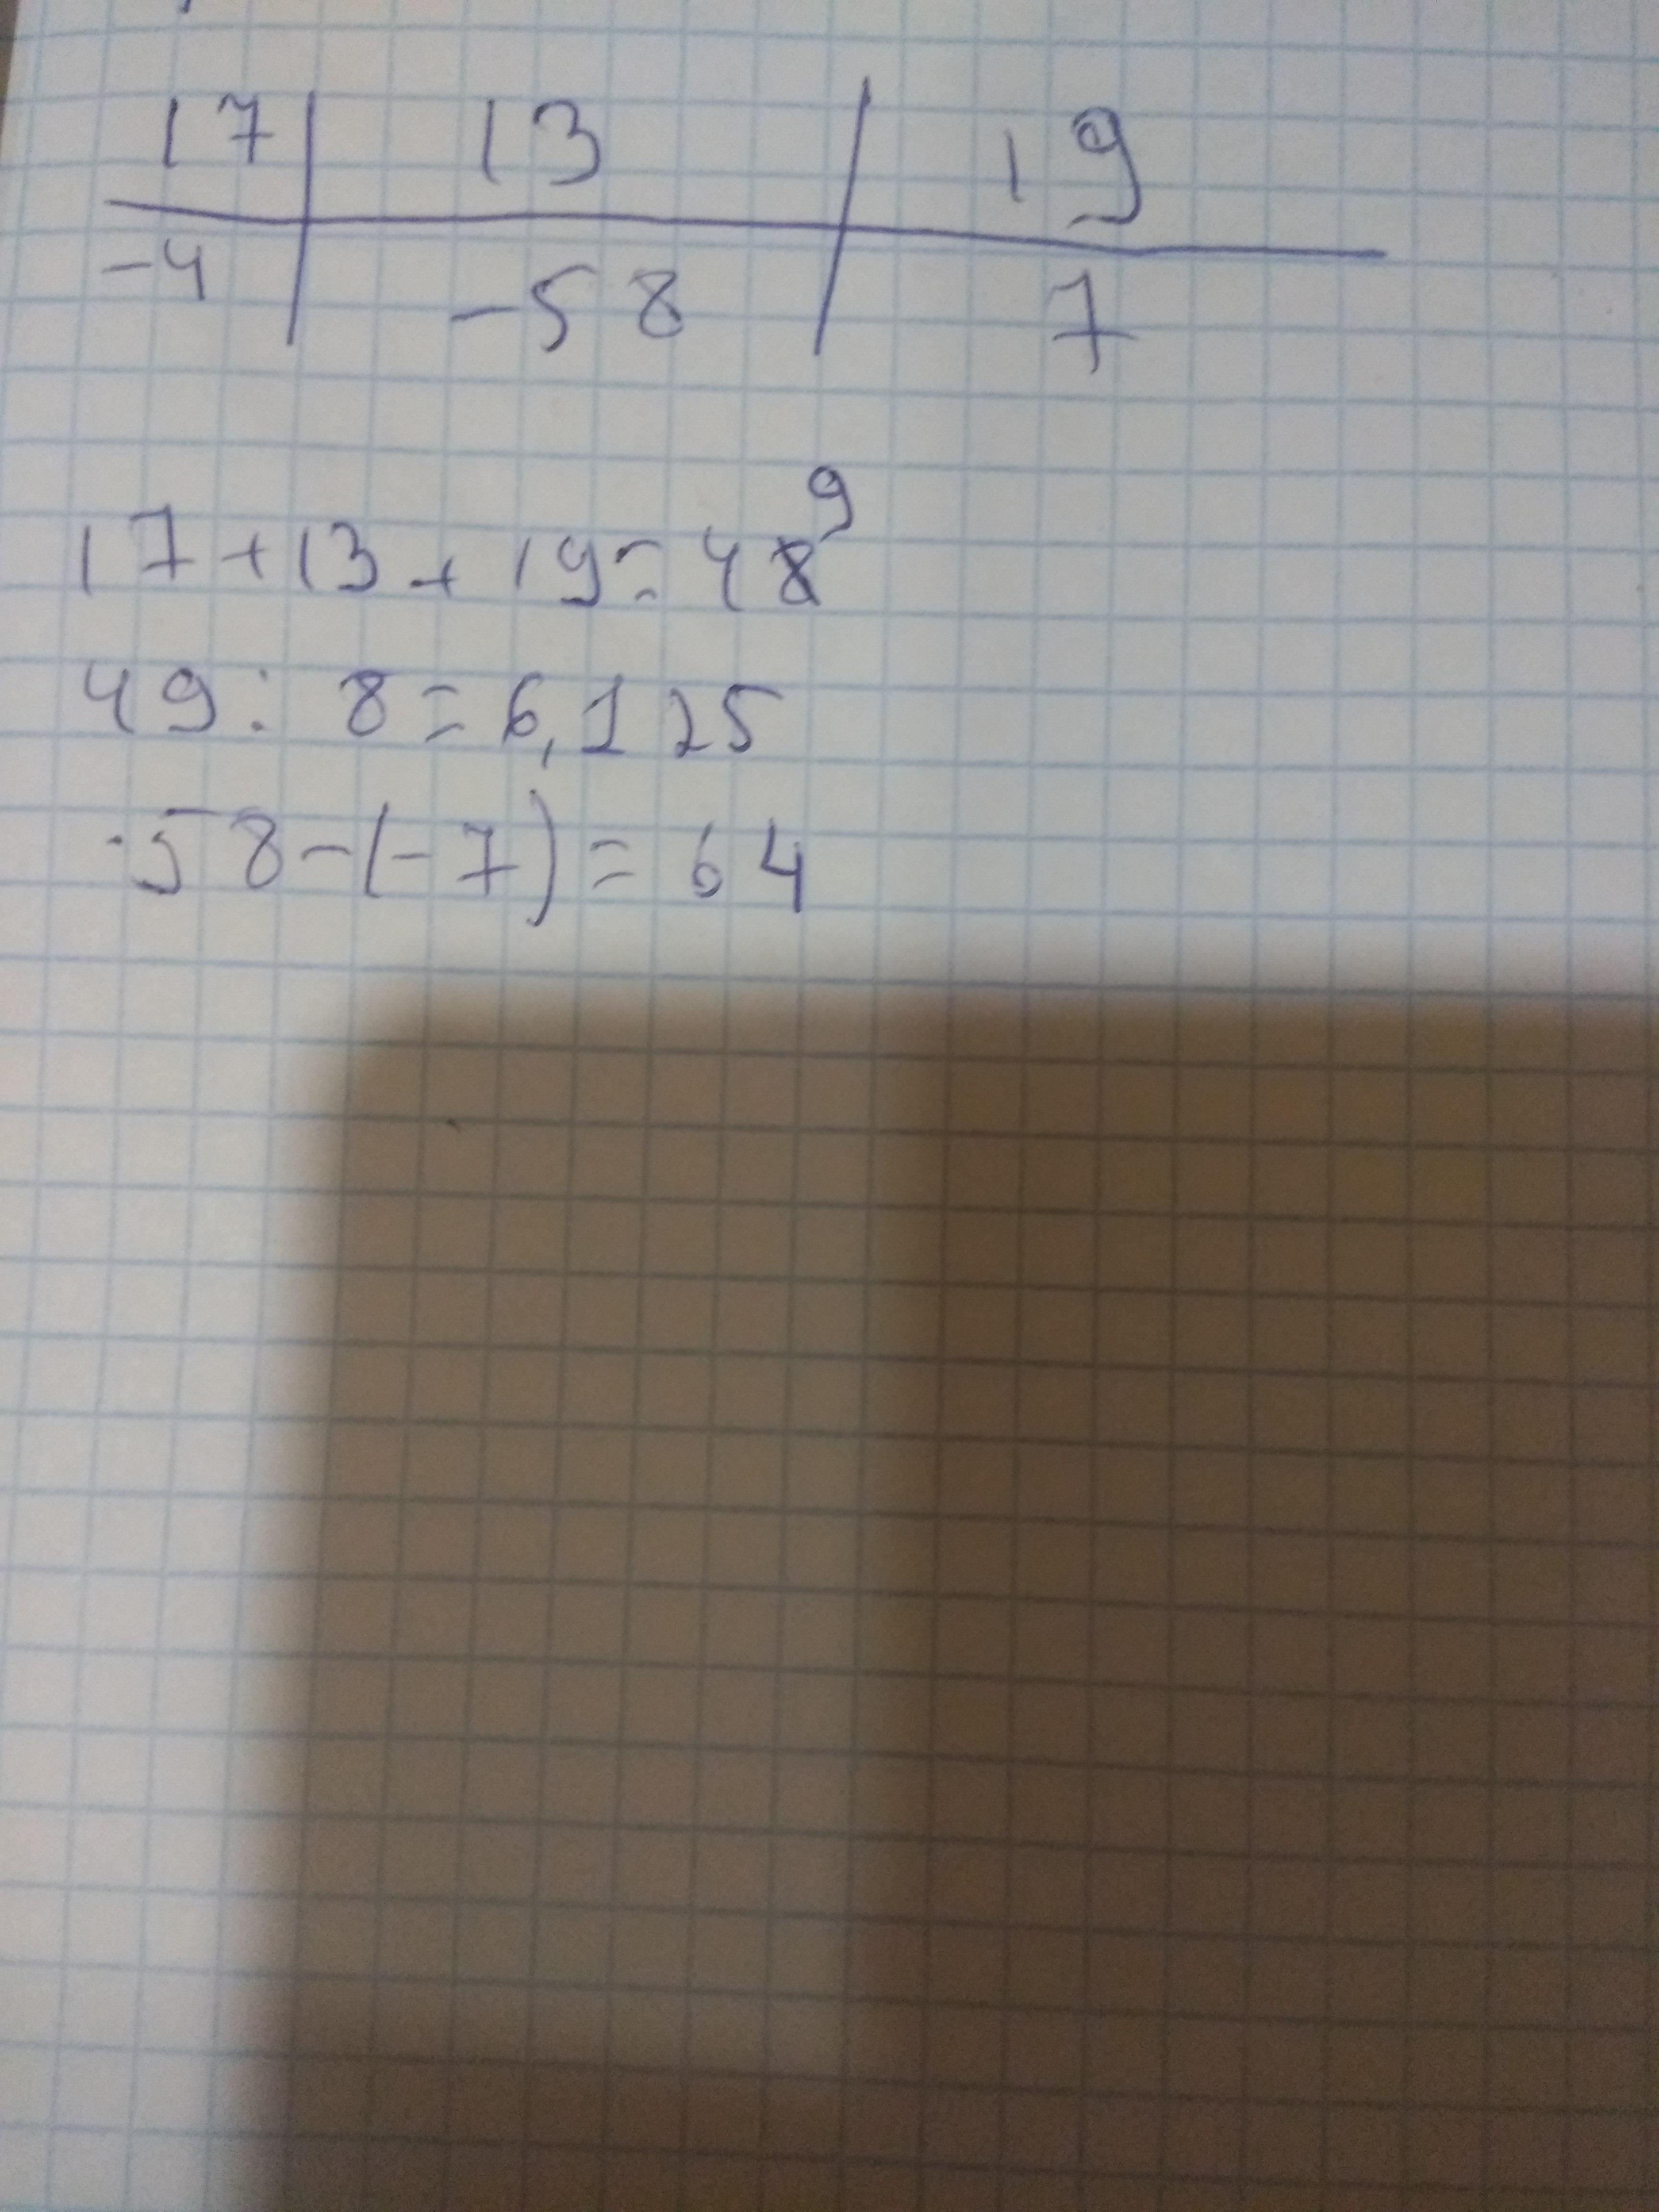 17 | 13 | 19
-4 | -58 | 7
17+13+19=49
49:8=6,125
-58-(-7)=64